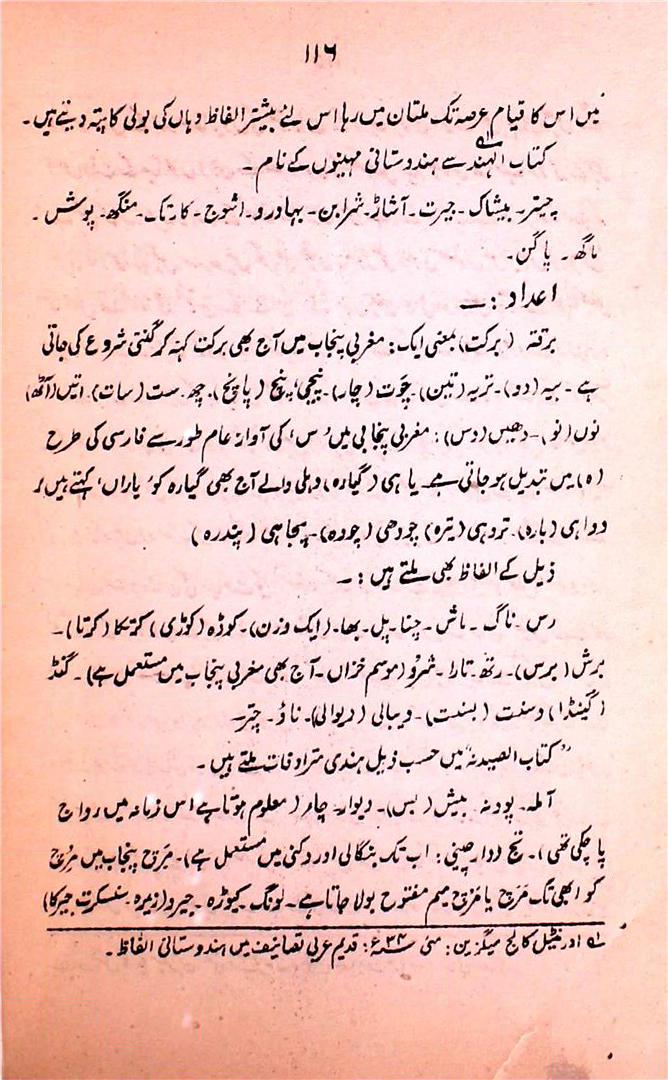 ۱۱۶
میں اس کا قیام عرصہ تک ملتان میں رہا اس لئے بیشتر الفاظ وہاں کی بولی کا پتہ دیتے ہیں۔
کتاب الہند سے ہندوستانی مہینوں کے نام۔
چیتر۔ بیشاک۔ جیرت۔ آشاڑ۔ شرابن۔ بہادرو۔ اشوج۔ کارتک۔ منگھر۔ پوش۔
ماگھ۔ پاگن۔
اعداد :۔
برقتہ (برکت) بمعنی ایک: مغربی پنجاب میں آج بھی برکت کہنہ کر گنتی شروع کی جاتی
ہے۔ بیہ (دو)۔ تریہ (تین)۔ چوَت (چار)۔ پنچی، پنچ (پانچ)۔ چھ۔ ست (سات)۔ اتیں (آٹھ)
نوں (نو)۔ دھیں (دس): مغربی پنجابی میں 'س' کی آواز عام طور سے فارسی کی طرح
(ہ) میں تبدیل ہو جاتی ہے۔ یاہی (گیارہ، دہلی والے آج بھی گیارہ کو 'یاراں' کہتے ہیں)
دواہی (بارہ)۔ تروہی (تیرہ) چودھی (چودہ)۔ پنجاہی (پندرہ)
ذیل کے الفاظ بھی ملتے ہیں :۔
رس۔ ناگ۔ ماش۔ چنا۔ پل۔ بھا۔ (ایک وزن)۔ کوڈہ (کوڑی) کرتکا (کرتا)۔
برش (برس)۔ رتھ۔ تارا۔ شرو (موسم خزاں۔ آج بھی مغربی پنجاب میں مستعمل ہے)۔ گنڈ
(گینڈا) دسنت (بسنت)۔ دیبالی (دیوالی)۔ ناڈ۔ چتر۔
"کتاب الصیدنہ" میں حسب ذیل ہندی مترادفات ملتے ہیں۔
آملہ۔ پودنہ۔ بیش (بس)۔ دیوار۔ چار (معلوم ہوتا ہے اس زمانہ میں رواج
پا چکی تھی)۔ تج (دارچینی: اب تک بنگالی اور دکنی میں مستعمل ہے)۔ مَرچ پنجاب میں مِرچ
کو ابھی تک مَرچ یا مَرَچ میم مفتوح بولا جاتا ہے۔ لونگ۔ کیوڑہ۔ جیرو (زیرہ۔ سنسکرت جیرکا)
لہ اورنٹیل کالج میگزین: مئی ۳۴ء: قدیم عربی تصانیف میں ہندوستانی الفاظ۔